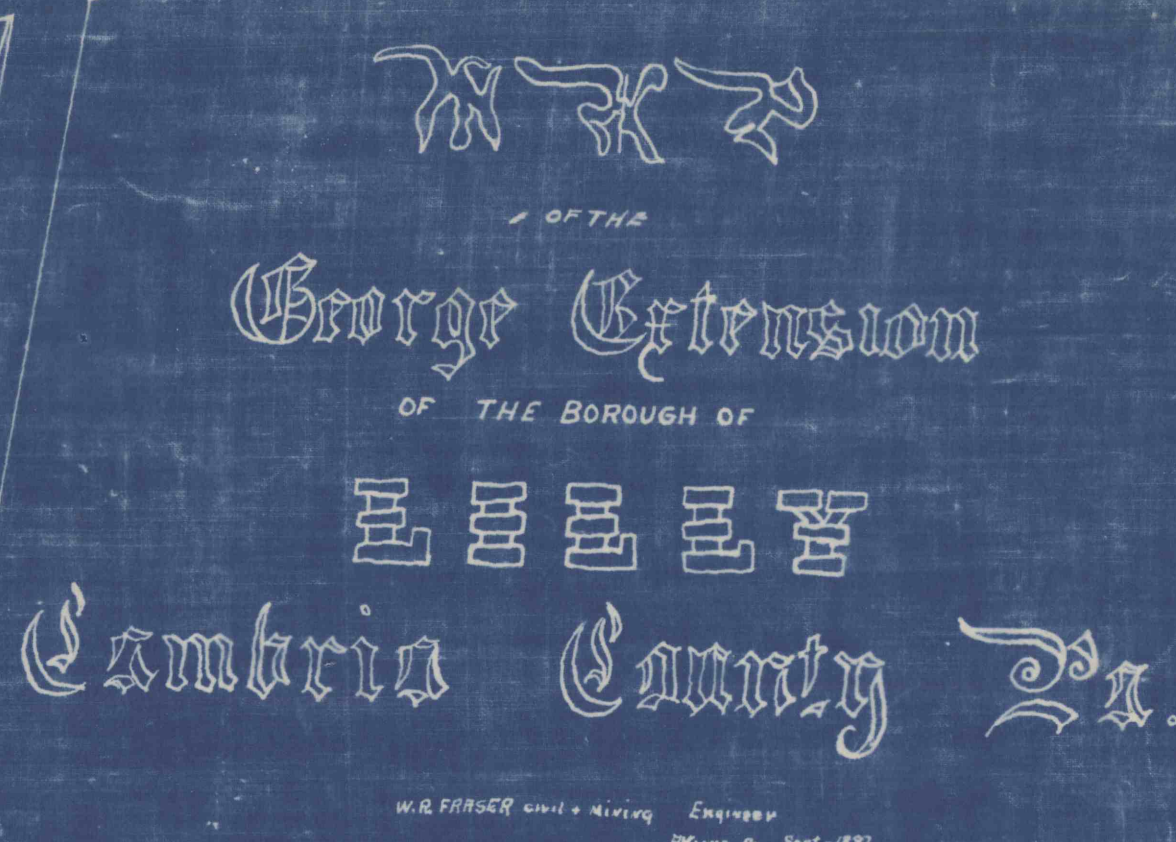 MAP
OF THE
George Extension
OF THE BOROUGH OF
LILLY
Cambria County Pa.
W.R. FRASER Civil + Mining Engineer
Sept. 1897